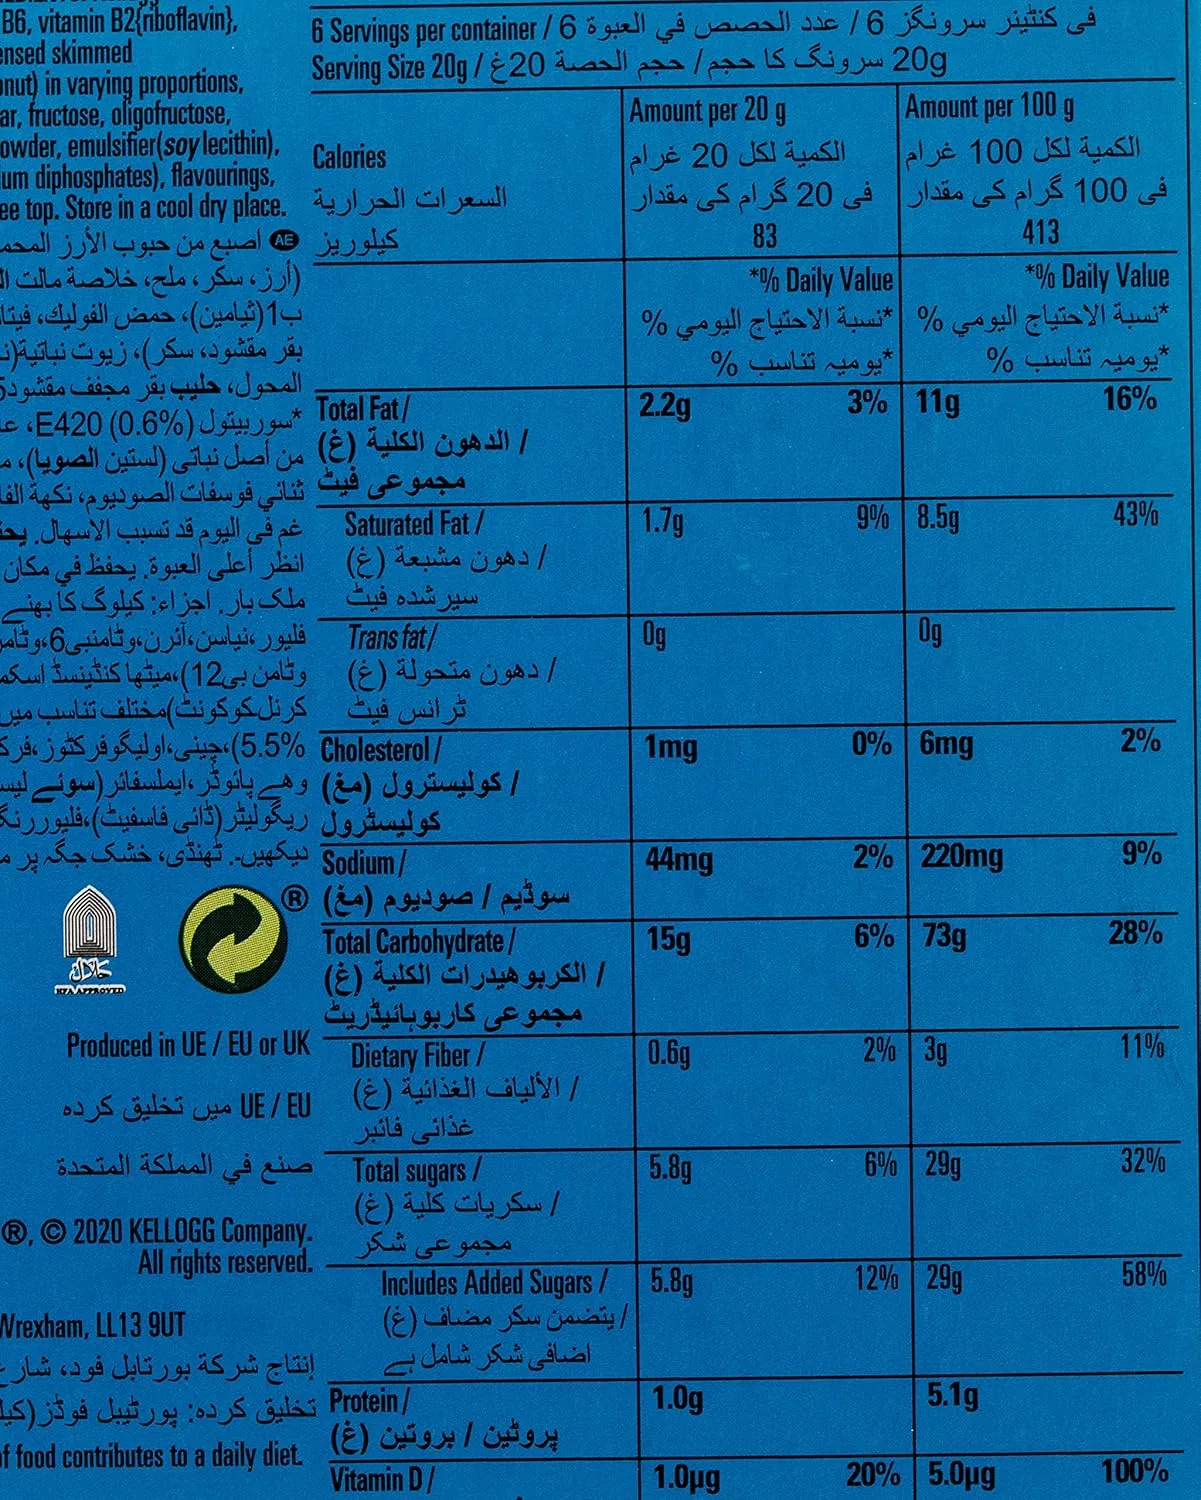 B6, vitamin B2{riboflavin},
skimmed
in varying proportions,
fructose, oligofructose,
emulsifier(soy lecithin),
diphosphates), flavourings,
top. Store in a cool dry place.
AE اصبع من حبوب الأرز
(أرز، سكر، ملح، خلاصة مالت
ب1(ثيامين)، حمض الفوليك،
بقر مقشود، سكر)، زيوت نباتية
المحول، حليب بقر مجفف مقشود
*سوربيتول E420 (0.6%)،
من أصل نباتى (لستين الصويا)،
ثنائي فوسفات الصوديوم، نكهة
غم فى اليوم قد تسبب الاسهال.
انظر أعلى العبوة. يحفظ في مكان
ملک بار. اجزاء: کیلوگ کا بھنے
فلیور،نیاسن،آئرن،وٹامنبی6،
وٹامن بی12)،میٹھا کنڈینسڈ
کرنل،کوکونٹ)مختلف تناسب میں
5.5%)،چینی،اولیگوفرکٹوز،
وھے پائوڈر،ایملسفائر(سوئے
ریگولیٹر(ڈائی فاسفیٹ)،
دیکھیں۔. ٹھنڈی، خشک جگہ پر
®
حلال
HFA APPROVED
Produced in UE / EU or UK
UE / EU میں تخلیق کردہ
صنع في المملكة المتحدة
®, © 2020 KELLOGG Company.
All rights reserved.
Wrexham, LL13 9UT
إنتاج شركة بورتابل فود،
تخلیق کردہ: پورٹیبل فوڈز
of food contributes to a daily diet.
6 Servings per container / عدد الحصص في العبوة 6 / فی کنٹینر سرونگز 6
Serving Size 20g / حجم الحصة 20غ / سرونگ کا حجم 20g
Amount per 20 g
الكمية لكل 20 غرام
فی 20 گرام کی مقدار
Amount per 100 g
الكمية لكل 100 غرام
فی 100 گرام کی مقدار
Calories
السعرات الحرارية
کیلوریز 83 413
*% Daily Value *% Daily Value
*نسبة الاحتياج اليومي % *نسبة الاحتياج اليومي %
*یومیہ تناسب % *یومیہ تناسب %
Total Fat / 2.2g 3% 11g 16%
الدهون الكلية (غ) /
مجموعی فیٹ
Saturated Fat / 1.7g 9% 8.5g 43%
دهون مشبعة (غ) /
سیرشدہ فیٹ
Trans fat/ 0g 0g
دهون متحولة (غ) /
ٹرانس فیٹ
Cholesterol / 1mg 0% 6mg 2%
كوليسترول (مغ) /
کولیسٹرول
Sodium / 44mg 2% 220mg 9%
سوڈیم / صوديوم (مغ)
Total Carbohydrate / 15g 6% 73g 28%
الكربوهيدرات الكلية (غ) /
مجموعی کاربوہائیڈریٹ
Dietary Fiber / 0.6g 2% 3g 11%
الألياف الغذائية (غ) /
غذائی فائبر
Total sugars / 5.8g 6% 29g 32%
سكريات كلية (غ) /
مجموعی شکر
Includes Added Sugars / 5.8g 12% 29g 58%
يتضمن سكر مضاف (غ) /
اضافی شکر شامل ہے
Protein / 1.0g 5.1g
پروٹین / بروتين (غ)
Vitamin D / 1.0µg 20% 5.0µg 100%